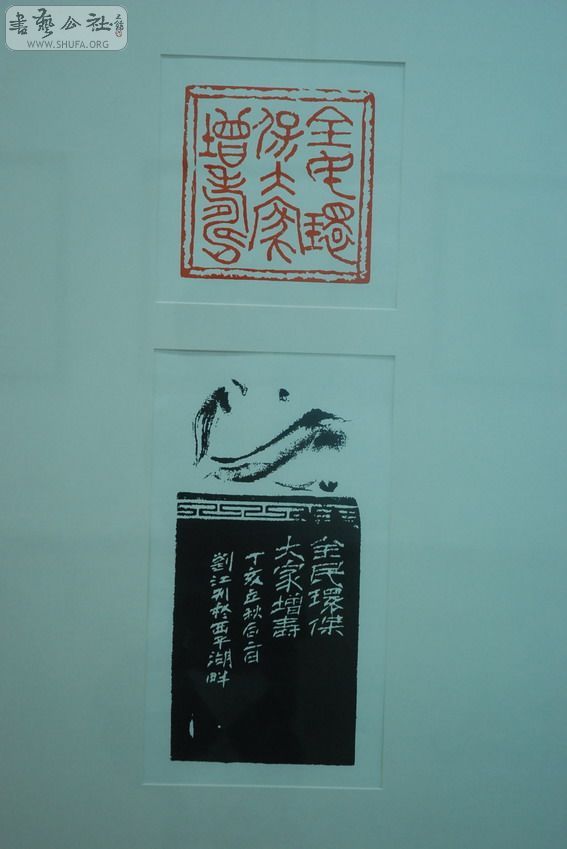 書藝公社
WWW.SHUFA.ORG
全民環
保大家
增壽
全民環保
大家增壽
丁亥立秋后二日
劉江刊於西子湖畔